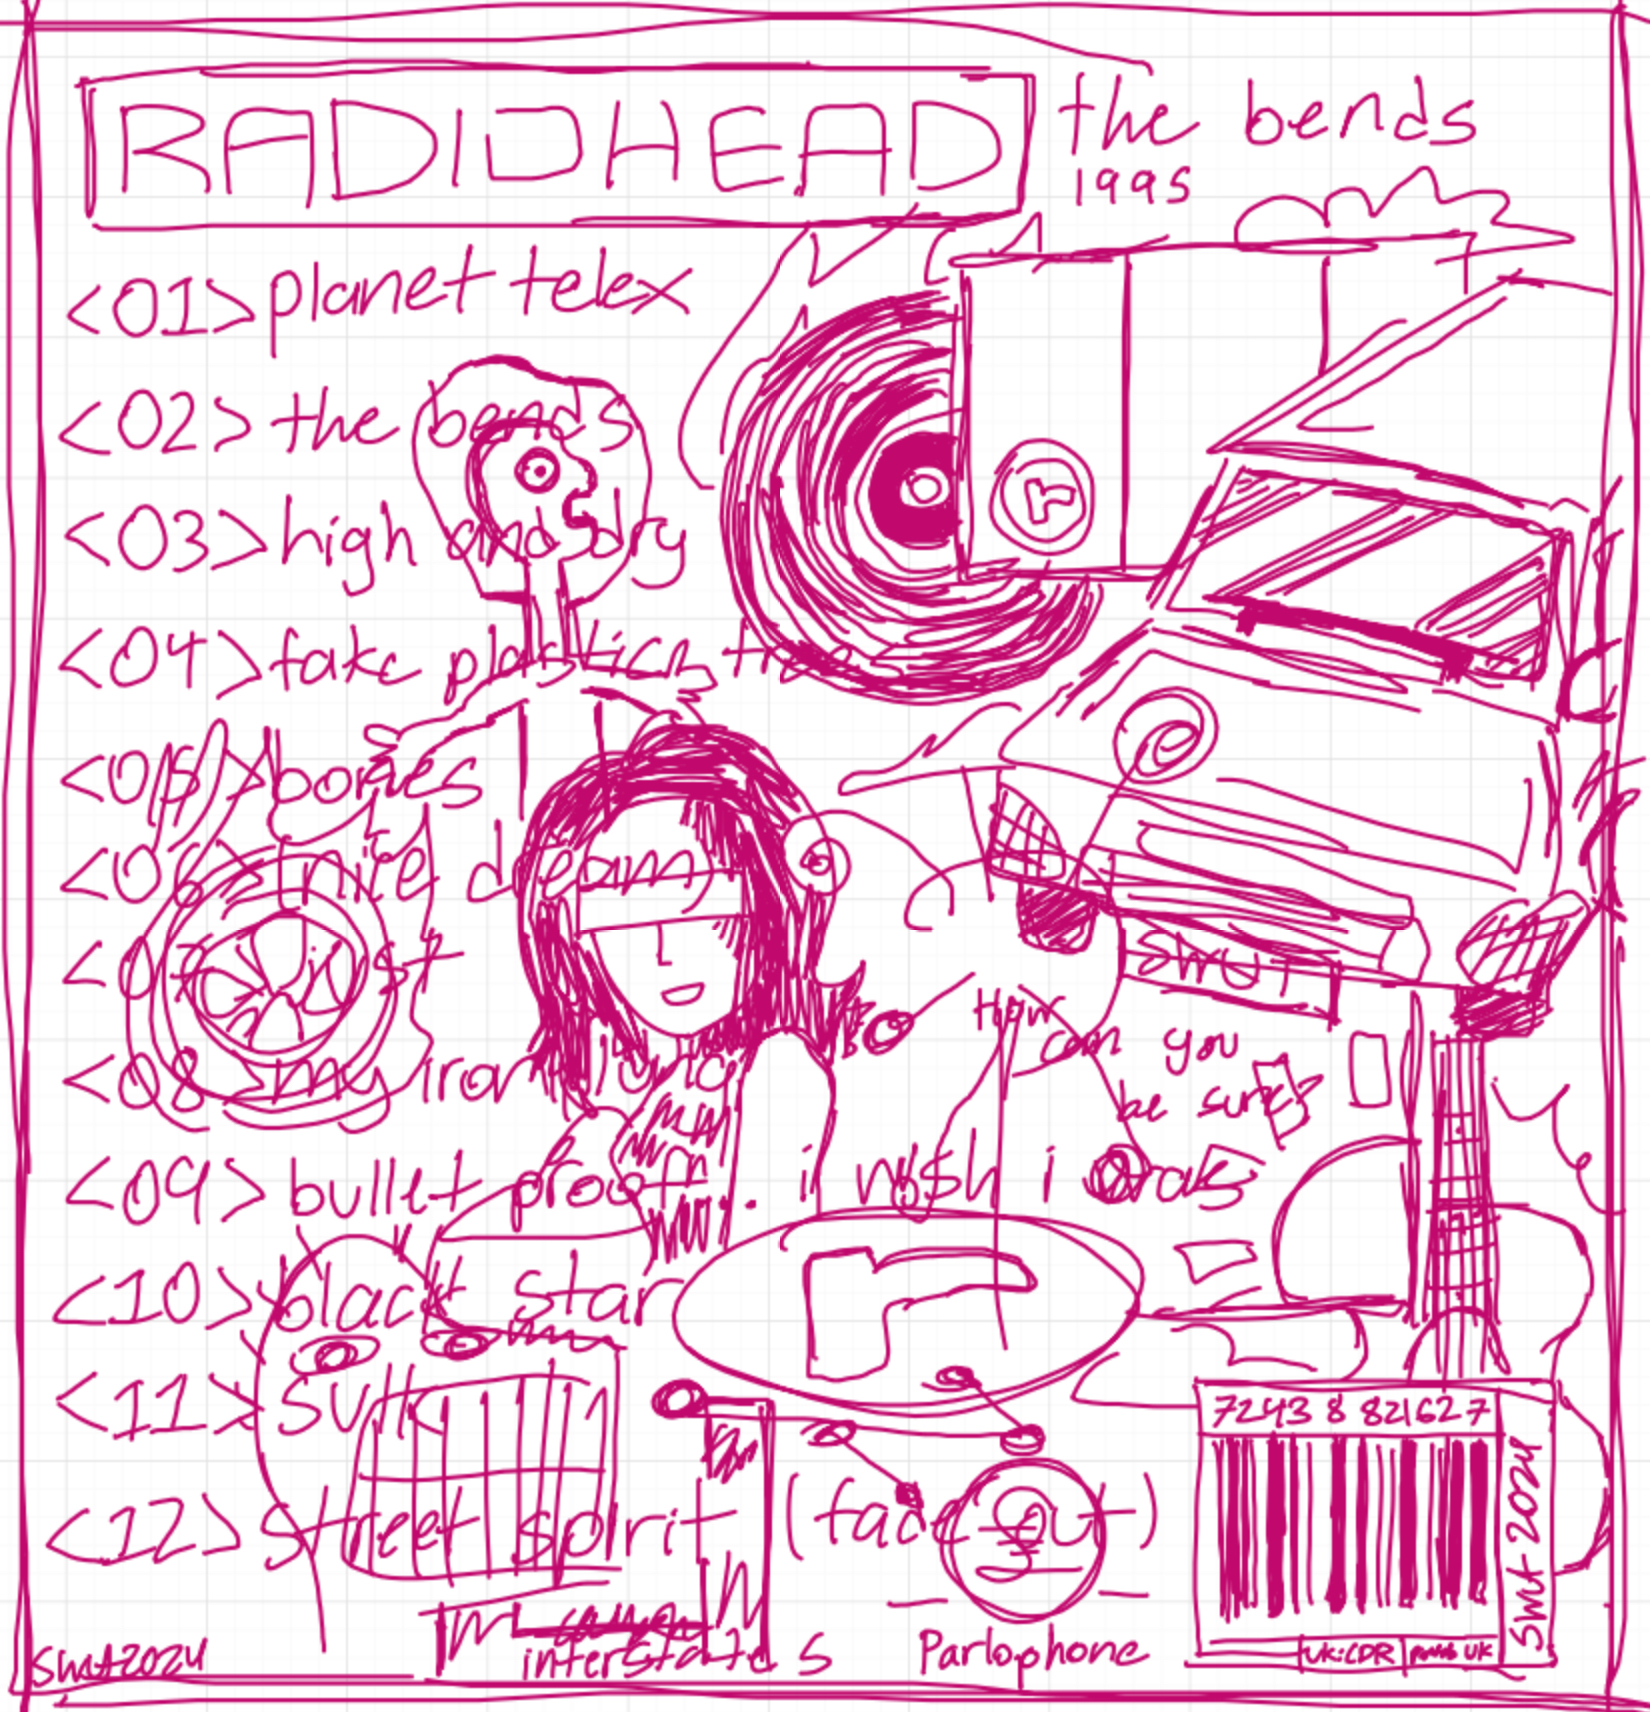 RADIOHEAD
the bends
1995
<01> planet telex
<02> the bends
<03> high and dry
<04> fake plastic trees
<05> bones
nice dream
just
<08> my iron lung
<09> bullet proof.. i wish i was
<10> black star
<11> sulk
<12> street spirit (fade out)
r
SWUT
How
can you
be sure?
r
7243 8 821627
swut 2024
UK:CDR
UK
swut2024
interstate 5
Parlophone